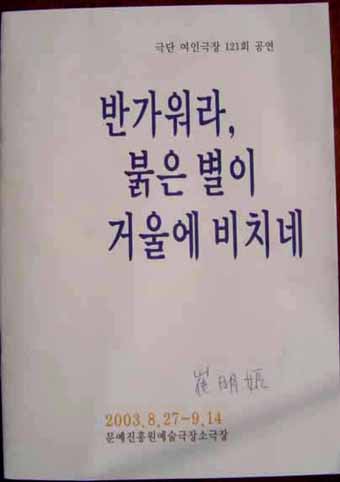 극단 여인극장 121회 공연
반가워라,
붉은 별이
거울에 비치네
崔明
2003.8.27~9.14
문예진흥원예술극장소극장